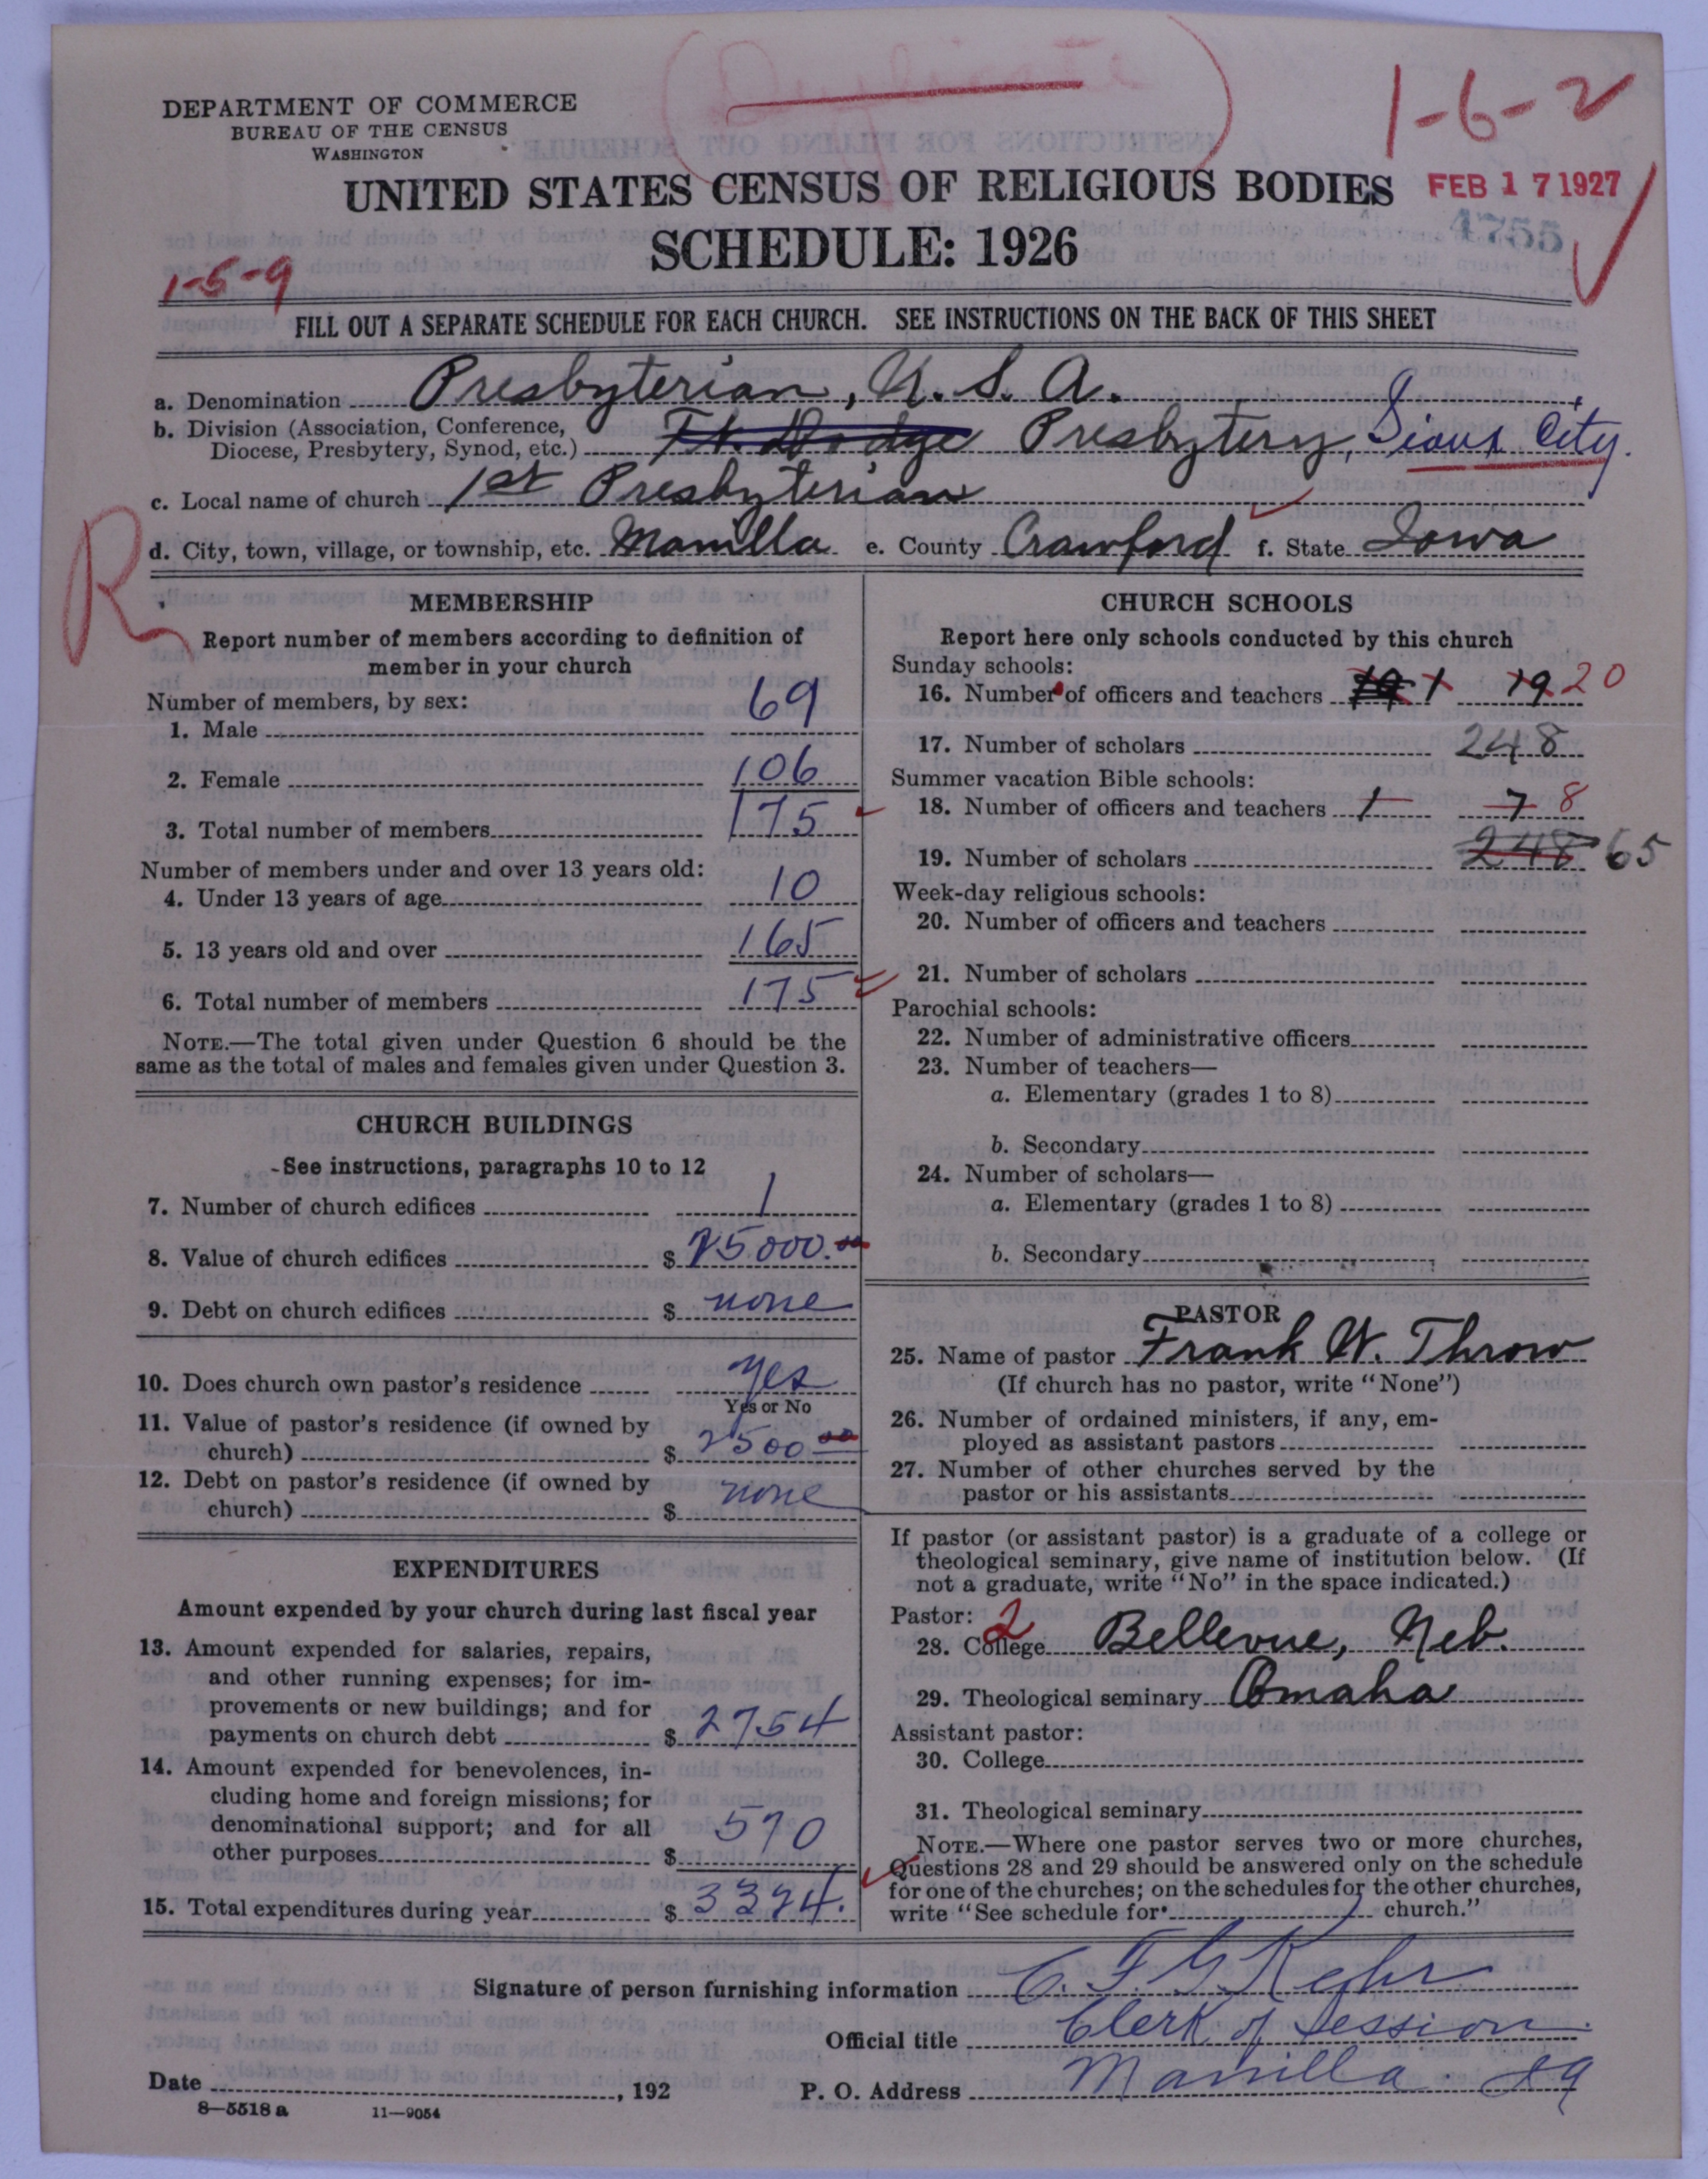 DEPARTMENT OF COMMERCE
BUREAU OF THE CENSUS
WASHINGTON
1-6-2
UNITED STATES CENSUS OF RELIGIOUS BODIES
FEB 17 1927
SCHEDULE: 1926
4755
1-5-9
FILL OUT A SEPARATE SCHEDULE FOR EACH CHURCH. SEE INSTRUCTIONS ON THE BACK OF THIS SHEET
a. Denomination Presbyterian, U. S. A.
b. Division (Association, Conference,
Diocese, Presbytery, Synod, etc.) Ft. Dodge Presbytery, Sioux City.
c. Local name of church 1st Presbyterian
d. City, town, village, or township, etc. Manilla e. County Crawford f. State Iowa
R
MEMBERSHIP
Report number of members according to definition of
member in your church
Number of members, by sex:
1. Male 69
2. Female 106
3. Total number of members 175
Number of members under and over 13 years old:
4. Under 13 years of age 10
5. 13 years old and over 165
6. Total number of members 175
NOTE.—The total given under Question 6 should be the
same as the total of males and females given under Question 3.
CHURCH BUILDINGS
See instructions, paragraphs 10 to 12
7. Number of church edifices 1
8. Value of church edifices $ 25000.00
9. Debt on church edifices $ none
10. Does church own pastor's residence yes
Yes or No
11. Value of pastor's residence (if owned by
church) $ 2500 00
12. Debt on pastor's residence (if owned by
church) $ none
EXPENDITURES
Amount expended by your church during last fiscal year
13. Amount expended for salaries, repairs,
and other running expenses; for im-
provements or new buildings; and for
payments on church debt $ 2754
14. Amount expended for benevolences, in-
cluding home and foreign missions; for
denominational support; and for all
other purposes $ 570
15. Total expenditures during year $ 3324.
CHURCH SCHOOLS
Report here only schools conducted by this church
Sunday schools:
16. Number of officers and teachers 1 19 20
17. Number of scholars 248
Summer vacation Bible schools:
18. Number of officers and teachers 1 7 8
19. Number of scholars 248 65
Week-day religious schools:
20. Number of officers and teachers
21. Number of scholars
Parochial schools:
22. Number of administrative officers
23. Number of teachers—
a. Elementary (grades 1 to 8)
b. Secondary
24. Number of scholars—
a. Elementary (grades 1 to 8)
b. Secondary
PASTOR
25. Name of pastor Frank W. Throw
(If church has no pastor, write "None")
26. Number of ordained ministers, if any, em-
ployed as assistant pastors
27. Number of other churches served by the
pastor or his assistants
If pastor (or assistant pastor) is a graduate of a college or
theological seminary, give name of institution below. (If
not a graduate, write "No" in the space indicated.)
Pastor: 2
28. College Bellevue, Neb.
29. Theological seminary Omaha
Assistant pastor:
30. College
31. Theological seminary
NOTE.—Where one pastor serves two or more churches,
Questions 28 and 29 should be answered only on the schedule
for one of the churches; on the schedules for the other churches,
write "See schedule for church."
Signature of person furnishing information C. F. G. Kehr
Official title Clerk of Session
Date , 192 P. O. Address Manilla. Ia
8—5518 a 11—9054